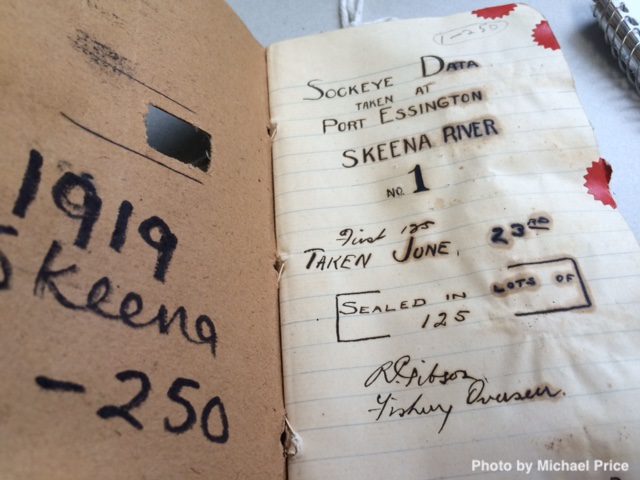 1919
Skeena
-250
1-250
SOCKEYE DATA
TAKEN AT
PORT ESSINGTON
SKEENA RIVER
NO. 1
First 125
TAKEN JUNE. 23RD
SEALED IN LOTS OF
125
R Gibson
Fishery Overseer.
Photo by Michael Price